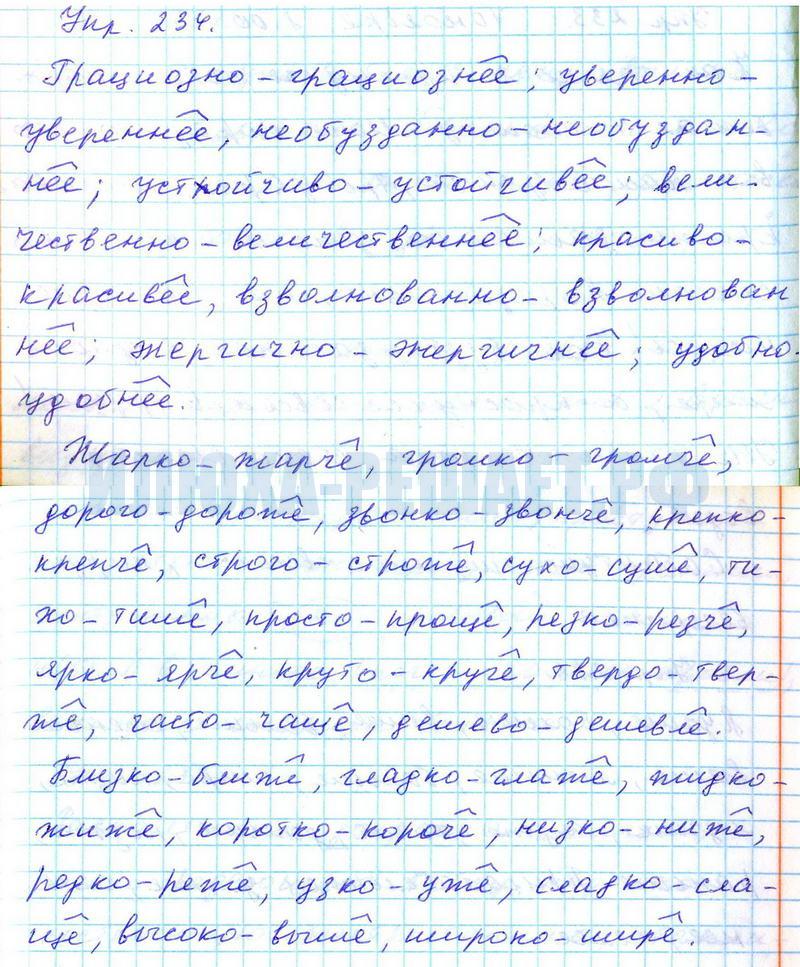 Упр. 234.
Грациозно - грациознее; уверенно -
увереннее, необузданно - необуздан-
нее; устойчиво - устойчивее; вели-
чественно - величественнее; красиво -
красивее, взволнованно - взволнован
нее; энергично - энергичнее; удобно -
удобнее.
Жарко - жарче, громко - громче,
ИЛЮХА-РЕШАЕТ.РФ
дорого - дороже, звонко - звонче, крепко -
крепче, строго - строже, сухо - суше, ти-
хо - тише, просто - проще, резко - резче,
ярко - ярче, круто - круче, твердо - твер-
же, часто - чаще, дешево - дешевле.
Близко - ближе, гладко - глаже, жидко -
жиже, коротко - короче, низко - ниже,
редко - реже, узко - уже, сладко - сла-
ще, высоко - выше, широко - шире.